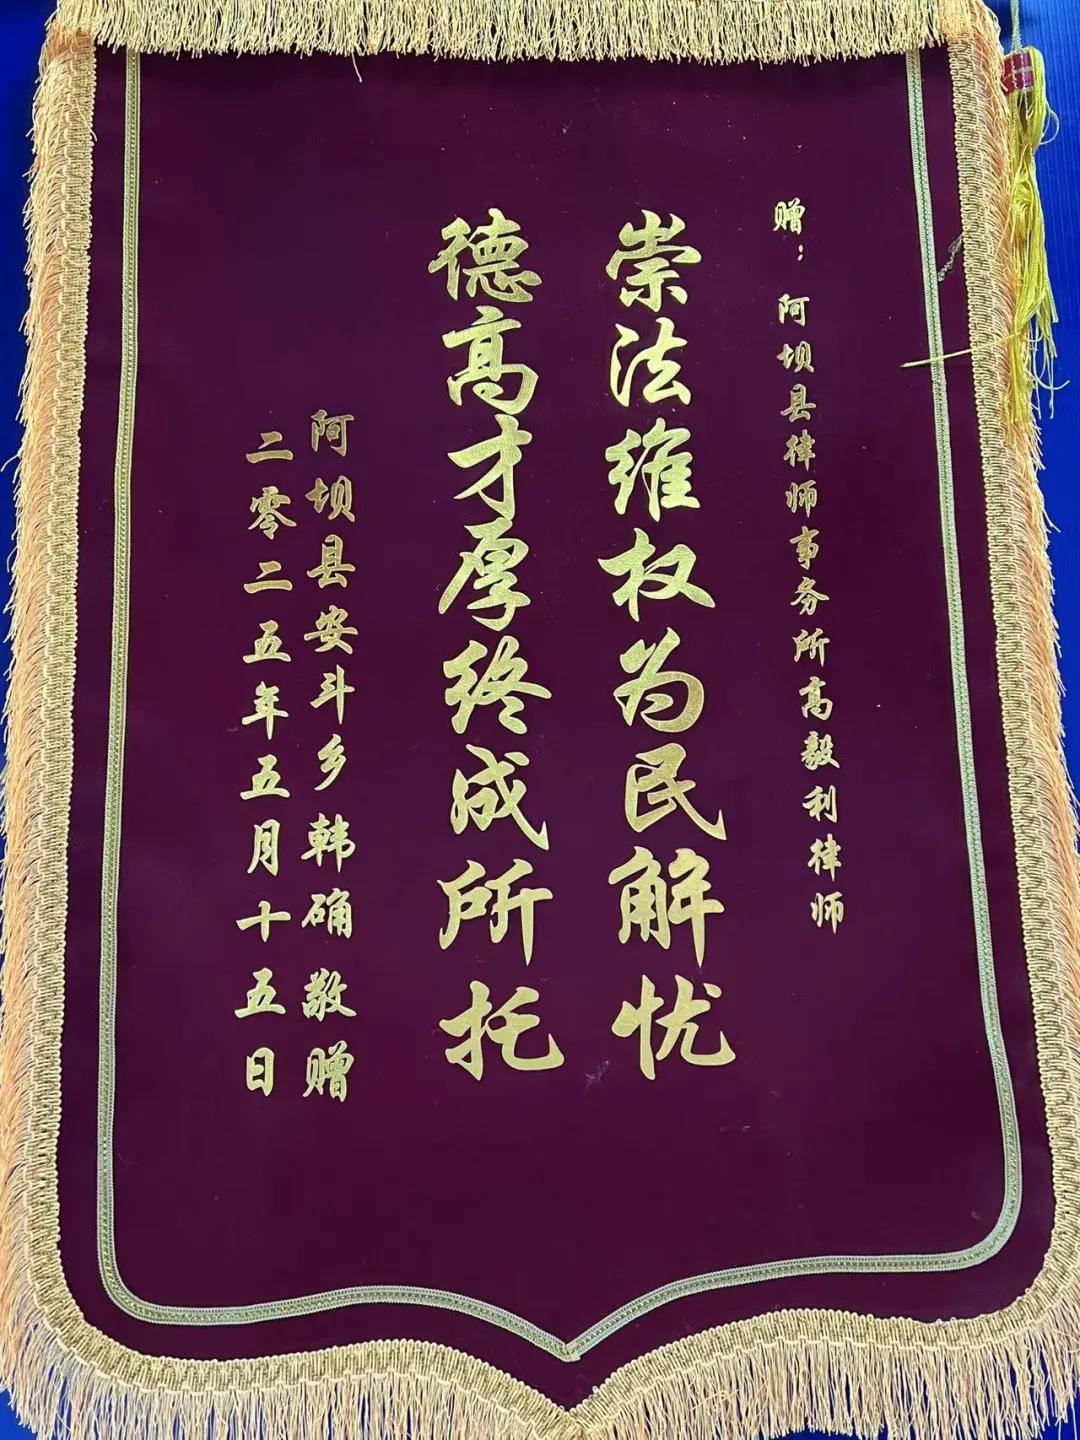 赠：阿坝县律师事务所高毅利律师
崇法维权为民解忧
德高才厚终成所托
阿坝县安斗乡韩确敬赠
二零二五年五月十五日